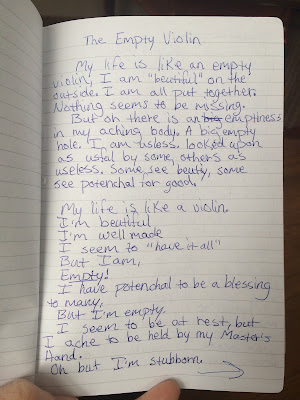 The Empty Violin
My life is like an empty
violin, I am "beutiful" on the
outside. I am all put together.
Nothing seems to be missing.
But oh there is an big emptiness
in my aching body. A big empty
hole. I am usless. looked upon
as usful by some, others as
useless. Some see beuty, some
see potenchal for good.
My life is like a violin.
I'm beutiful
I'm well made
I seem to "have it all"
But I am,
Empty!
I have potenchal to be a blessing
to many,
But I'm empty.
I seem to be at rest, but
I ache to be held by my Master's
Hand.
Oh but I'm stubborn. →